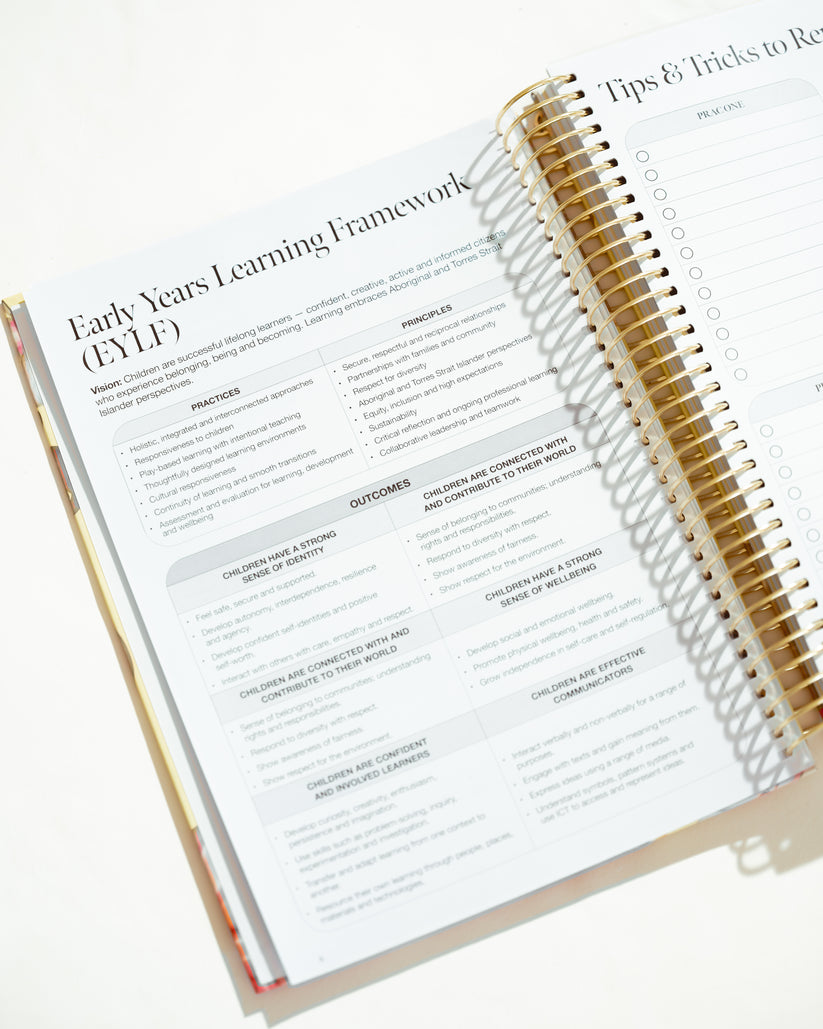 Early Years Learning Framework
(EYLF)
Vision: Children are successful lifelong learners — confident, creative, active and informed citizens
who experience belonging, being and becoming. Learning embraces Aboriginal and Torres Strait
Islander perspectives.
PRACTICES
• Holistic, integrated and interconnected approaches
• Responsiveness to children
• Play-based learning with intentional teaching
• Thoughtfully designed learning environments
• Cultural responsiveness
• Continuity of learning and smooth transitions
• Assessment and evaluation for learning, development
and wellbeing
PRINCIPLES
• Secure, respectful and reciprocal relationships
• Partnerships with families and community
• Respect for diversity
• Aboriginal and Torres Strait Islander perspectives
• Equity, inclusion and high expectations
• Sustainability
• Critical reflection and ongoing professional learning
• Collaborative leadership and teamwork
OUTCOMES
CHILDREN HAVE A STRONG
SENSE OF IDENTITY
• Feel safe, secure and supported.
• Develop autonomy, interdependence, resilience
and agency.
• Develop confident self-identities and positive
self-worth.
• Interact with others with care, empathy and respect
CHILDREN ARE CONNECTED WITH
AND CONTRIBUTE TO THEIR WORLD
• Sense of belonging to communities; understanding
rights and responsibilities.
• Respond to diversity with respect.
• Show awareness of fairness.
• Show respect for the environment.
CHILDREN ARE CONNECTED WITH AND
CONTRIBUTE TO THEIR WORLD
• Sense of belonging to communities; understanding
rights and responsibilities.
• Respond to diversity with respect.
• Show awareness of fairness.
• Show respect for the environment.
CHILDREN HAVE A STRONG
SENSE OF WELLBEING
• Develop social and emotional wellbeing.
• Promote physical wellbeing, health and safety.
• Grow independence in self-care and self-regulation
CHILDREN ARE CONFIDENT
AND INVOLVED LEARNERS
• Develop curiosity, creativity, enthusiasm,
persistence and imagination.
• Use skills such as problem-solving, inquiry,
experimentation and investigation.
• Transfer and adapt learning from one context to
another.
• Resource their own learning through people, places,
materials and technologies.
CHILDREN ARE EFFECTIVE
COMMUNICATORS
• Interact verbally and non-verbally for a range of
purposes.
• Engage with texts and gain meaning from them.
• Express ideas using a range of media.
• Understand symbols, pattern systems and
use ICT to access and represent ideas.
Tips & Tricks to
PRAC ONE